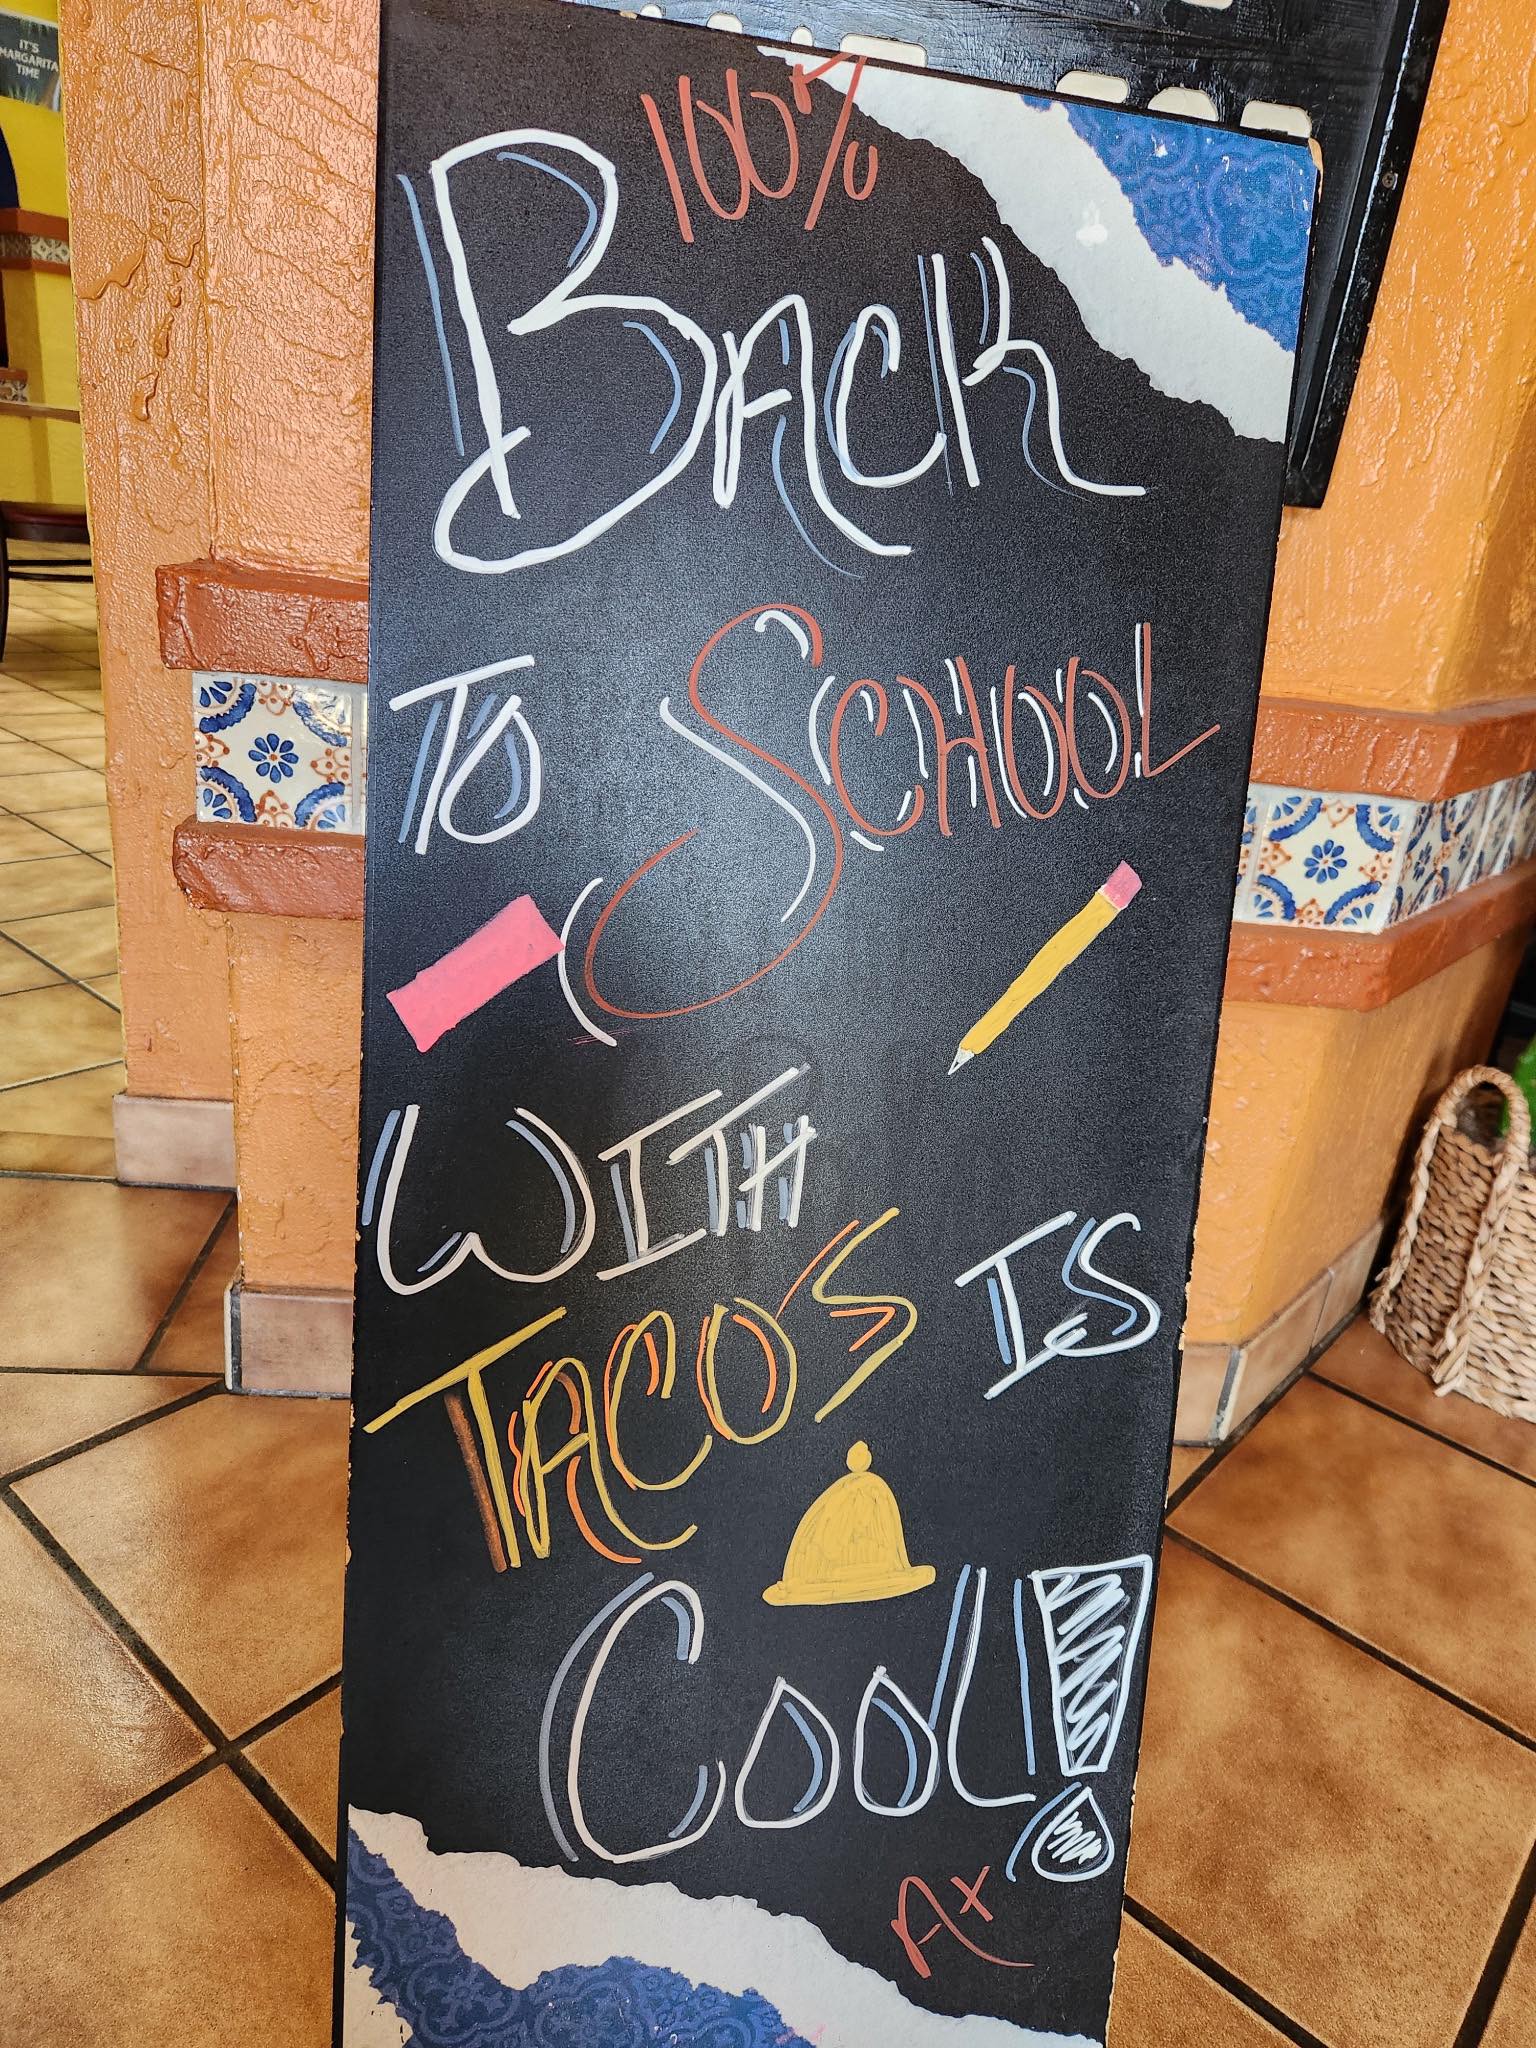 IT'S
MARGARITA
TIME
100%
BACK
TO SCHOOL
WITH
TACO'S IS
COOL!
A+